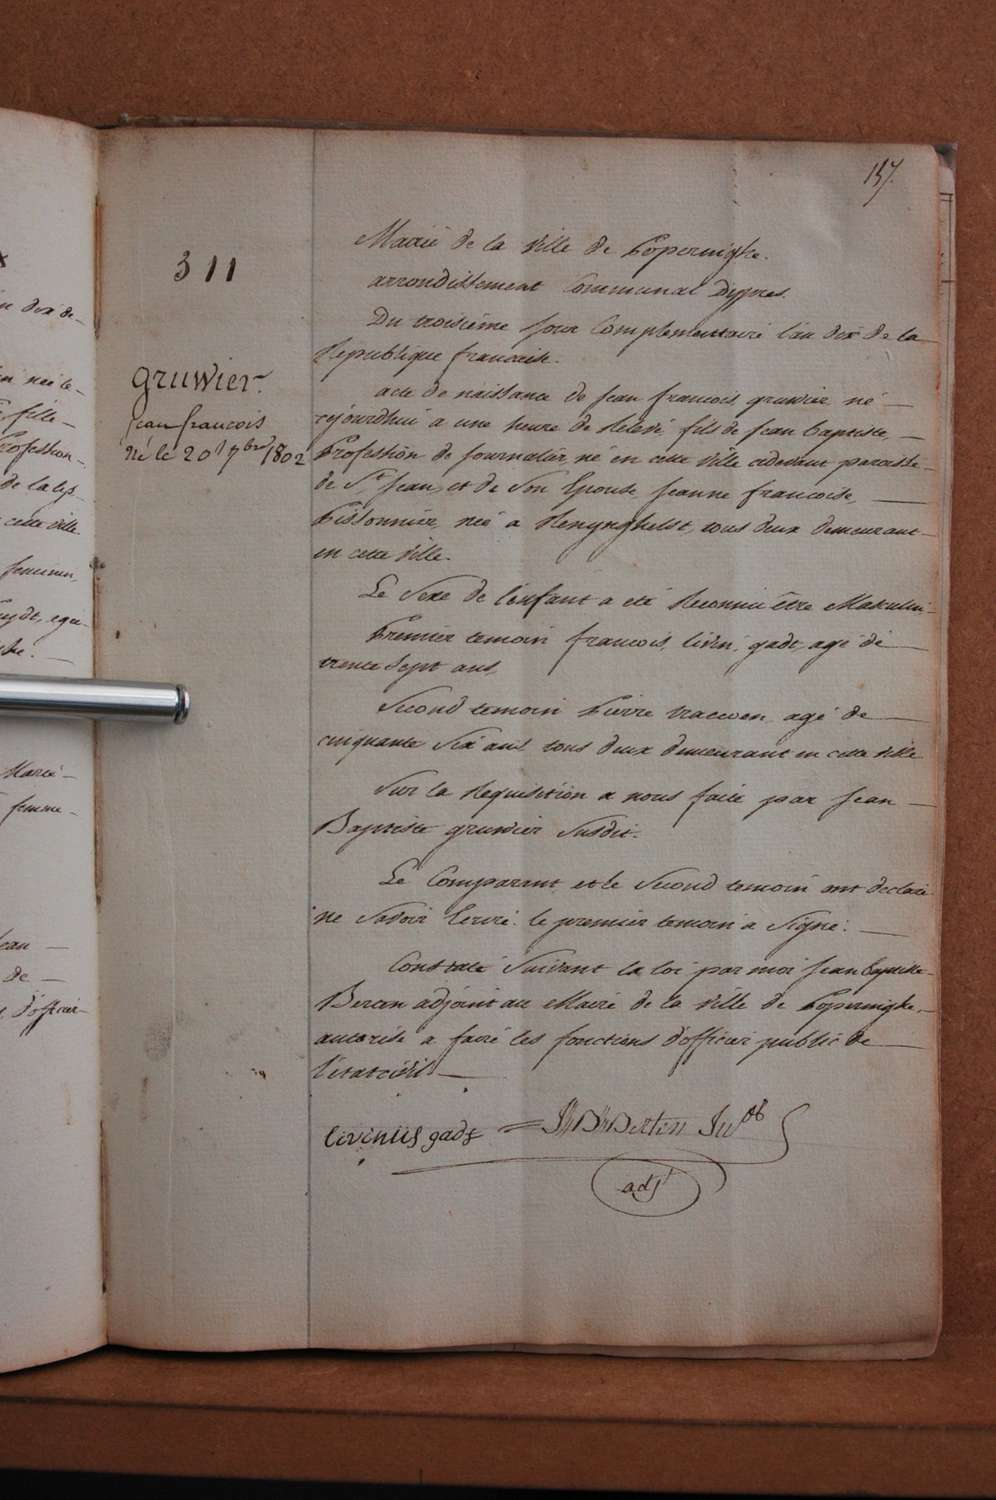 157.
311
gruwier
jean francois
né le 20 7bre 1802
Mairie de la ville de Poperinghe.
arrondissement Communal Dypres.
Du troisieme jour Complementaire l'an dix de la
Republique francaise.
acte de naissance de jean francois gruwier né
cejourdhui a une heure de Relevé, fils de jean baptiste,
Profession de journalier, né en cette ville cidevant paroisse
de St jean, et de son Epouse jeanne francoise,
Pissonnier, neé a Renynghelst, tous deux demeurant
en cette ville.
Le Sexe de l'enfant a eté Reconnu être Masculin
Premier temoin francois, livin, gadt, agé de
trente sept ans,
Second temoin Pierre agé de
cinquante six ans tous deux demeurant en cette ville
Sur la Requisition a nous faite par jean
Baptiste gruwier Susdit.
Le Comparant et le Second temoin ont declaré
ne savoir Ecrire. le premier temoin a Signé.
Constaté Suivant la loi par moi jean baptiste
adjoint au Maire de la ville de Poperinghe,
autorisé a faire les fonctions d'officier public de
l'état civil
livinus gadt
adjt
jean
de
d'officier
femme
Maire
feminin,
cette ville
fille
Profession